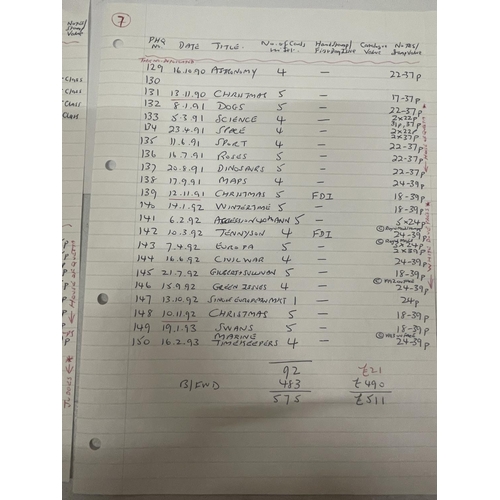 7
PHQ No. DATE TITLE. No. of Cards in set. Handstamp/ First Day Issue Catalogue Value Notes/ Stamp Value
129 16.10.90 ASTRONOMY 4 — 22-37p
130
131 13.11.90 CHRISTMAS 5 — 17-37p
132 8.1.91 DOGS 5 — 22-37p
133 5.3.91 SCIENCE 4 — 2x22p
134 23.4.91 SPACE 4 — 2x22p 2x37p
135 11.6.91 SPORT 4 — 22-37p
136 16.7.91 ROSES 5 — 22-37p
137 20.8.91 DINOSAURS 5 — 22-37p
138 17.9.91 MAPS 4 — 24-39p
139 12.11.91 CHRISTMAS 5 FDI 18-39p
140 14.1.92 WINTERTIME 5 — 18-39p
141 6.2.92 ACCESSION 5 — 5x24p
142 10.3.92 TENNYSON 4 FDI 24-39p
143 7.4.92 EUROPA 5 —
144 16.6.92 CIVIL WAR 4 — 24-39p
145 21.7.92 GILBERT & SULLIVAN 5 — 18-39p
146 15.9.92 GREEN ISSUES 4 — 24-39p
147 13.10.92 SINGLE EUROPEAN MKT 1 — 24p
148 10.11.92 CHRISTMAS 5 — 18-39p
149 19.1.93 SWANS 5 — 18-39p
150 16.2.93 MARINE TIMEKEEPERS 4 — 24-39p
92 £21
B/FWD 483 £490
575 £511